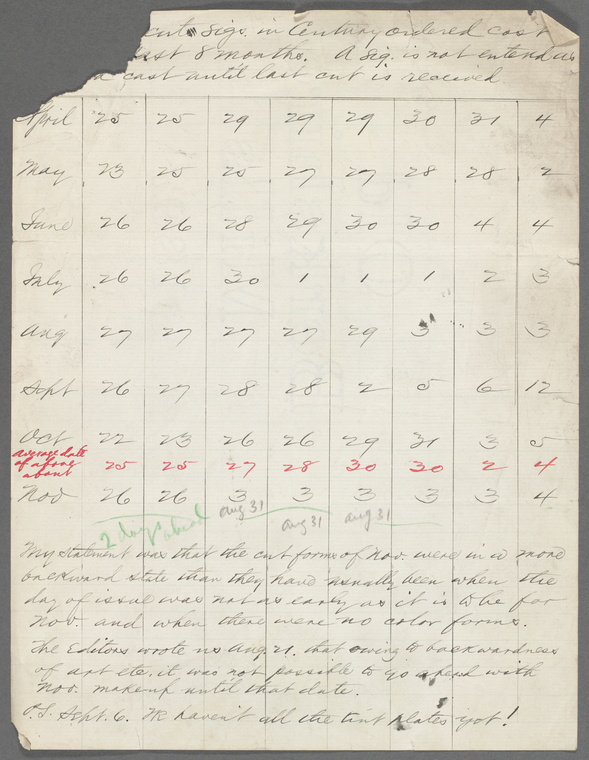 cuts sigs. in Century ordered cast
last 8 months. A sig. is not entend us
a cast until last cut is received
April 25 25 29 29 29 30 31 4
May 23 25 25 27 27 28 28 2
June 26 26 28 29 30 30 4 4
July 26 26 30 1 1 1 2 3
Aug 27 27 27 27 29 3 3 3
Sept 26 27 28 28 2 5 6 12
Oct 22 23 26 26 29 31 3 5
average date
of along
about 25 25 27 28 30 30 2 4
Nov 26 26 3 3 3 3 3 4
2 days ahead aug 31 aug 31 aug 31
My statement was that the cut forms of Nov. were in a more
backward state than they have usually been when the
day of issue was not as early as it is to be for
Nov. and when there were no color forms.
The Editors wrote us Aug 21. that owing to backwardness
of art etc. it was not possible to go ahead with
Nov. makeup until that date.
P.S. Sept. 6. We haven't all the tint plates yet!